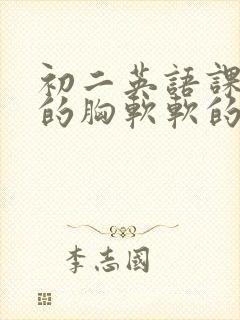 初二英語課
的胸軟軟的
李志國